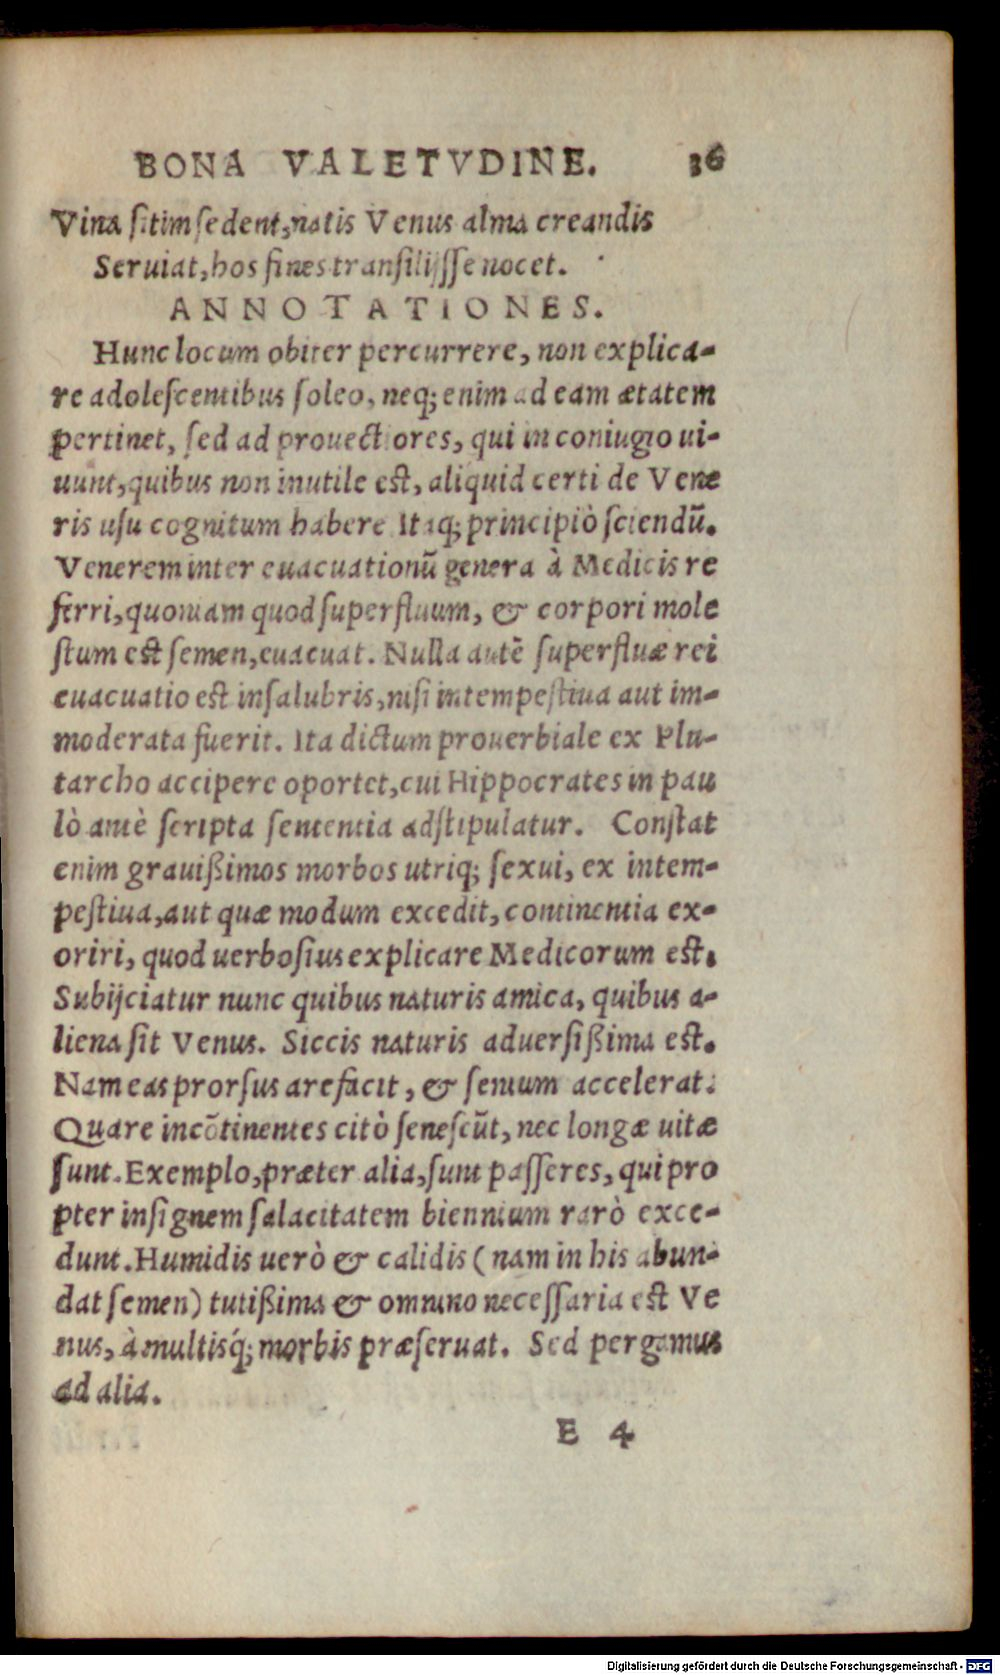 BONA VALETVDINE. 36
Vina ſitim ſedent, natis Venus alma creandis
Seruiat, hos fines tranſilijſſe nocet.
ANNOTATIONES.
Hunc locum obiter percurrere, non explica-
re adoleſcentibus ſoleo, neq; enim ad eam ætatem
pertinet, ſed ad prouectiores, qui in coniugio ui-
uunt, quibus non inutile eſt, aliquid certi de Vene
ris uſu cognitum habere. Itaq; principiò ſciendũ.
Venerem inter euacuationũ genera à Medicis re
ferri, quoniam quod ſuperfluum, & corpori mole
ſtum eſt ſemen, euacuat. Nulla autẽ ſuperfluæ rei
euacuatio eſt inſalubris, niſi intempeſtiua aut im-
moderata fuerit. Ita dictum prouerbiale ex Plu-
tarcho accipere oportet, cui Hippocrates in pau
lò antè ſcripta ſententia adſtipulatur. Conſtat
enim grauißimos morbos utriq; ſexui, ex intem-
peſtiua, aut quæ modum excedit, continentia ex-
oriri, quod uerboſius explicare Medicorum eſt.
Subijciatur nunc quibus naturis amica, quibus a-
liena ſit Venus. Siccis naturis aduerſißima eſt.
Nam eas prorſus arefacit, & ſenium accelerat.
Quare incõtinentes citò ſeneſcũt, nec longæ uitæ
ſunt. Exemplo, præter alia, ſunt paſſeres, qui pro
pter inſignem ſalacitatem biennium rarò exce-
dunt. Humidis uerò & calidis ( nam in his abun-
dat ſemen) tutißima & omnino neceſſaria eſt Ve
nus, à multisq́; morbis præſeruat. Sed pergamus
ad alia.
E 4
Digitalisierung gefördert durch die Deutsche Forschungsgemeinschaft - DFG